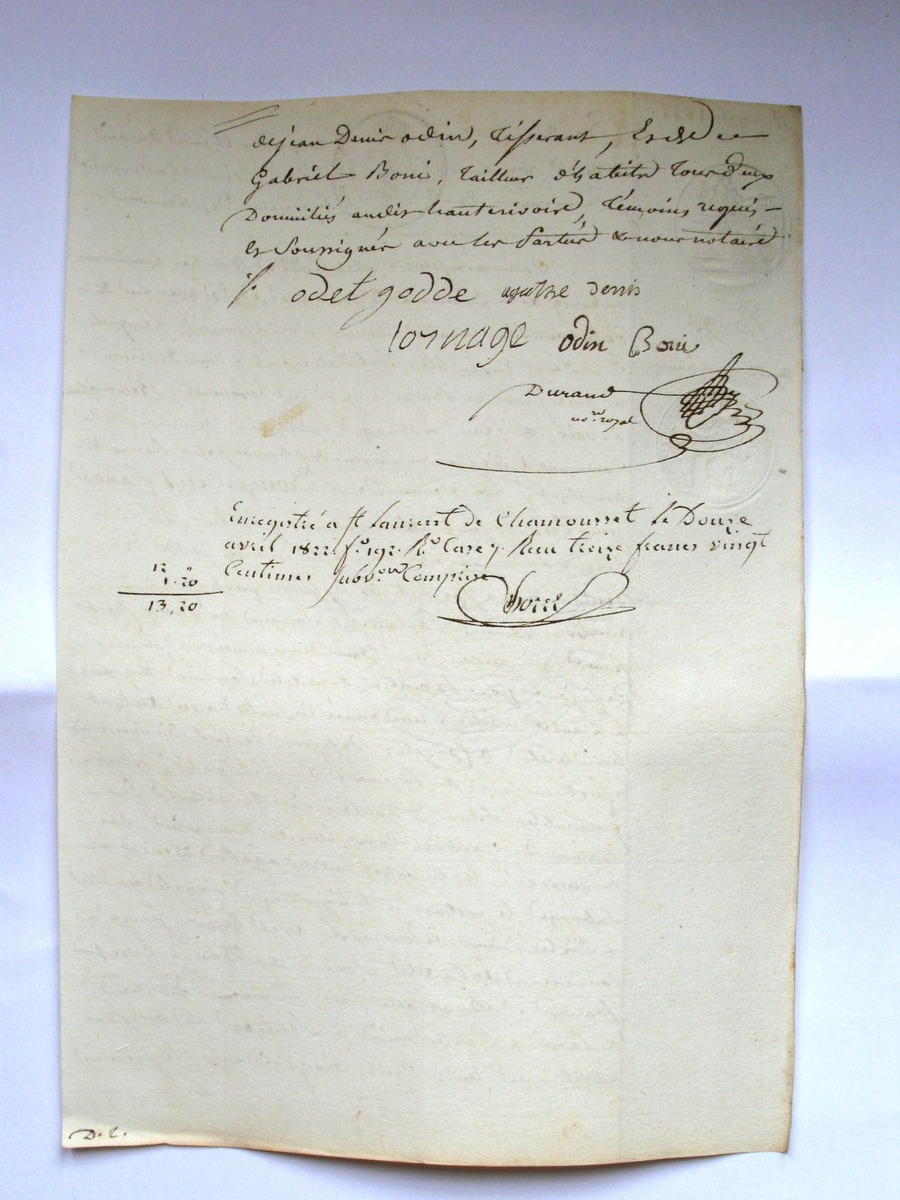 de jean Denis odin, tisserant, et de
Gabriel Boni, tailleur d'habits tous deux
Domiciliés audit hauterivoire, témoins requis
et soussignés avec les parties & nous notaire
odet godde agathe denis
tornage odin Boni
Durand
no.re royal
Enregistré a St laurent de Chamousset le Douze
avril 1822 fo. 192. Ro. Case 7. Recu treize francs vingt
Centimes subv.on Comprise
12 "
1.20
13,20
D. 2.